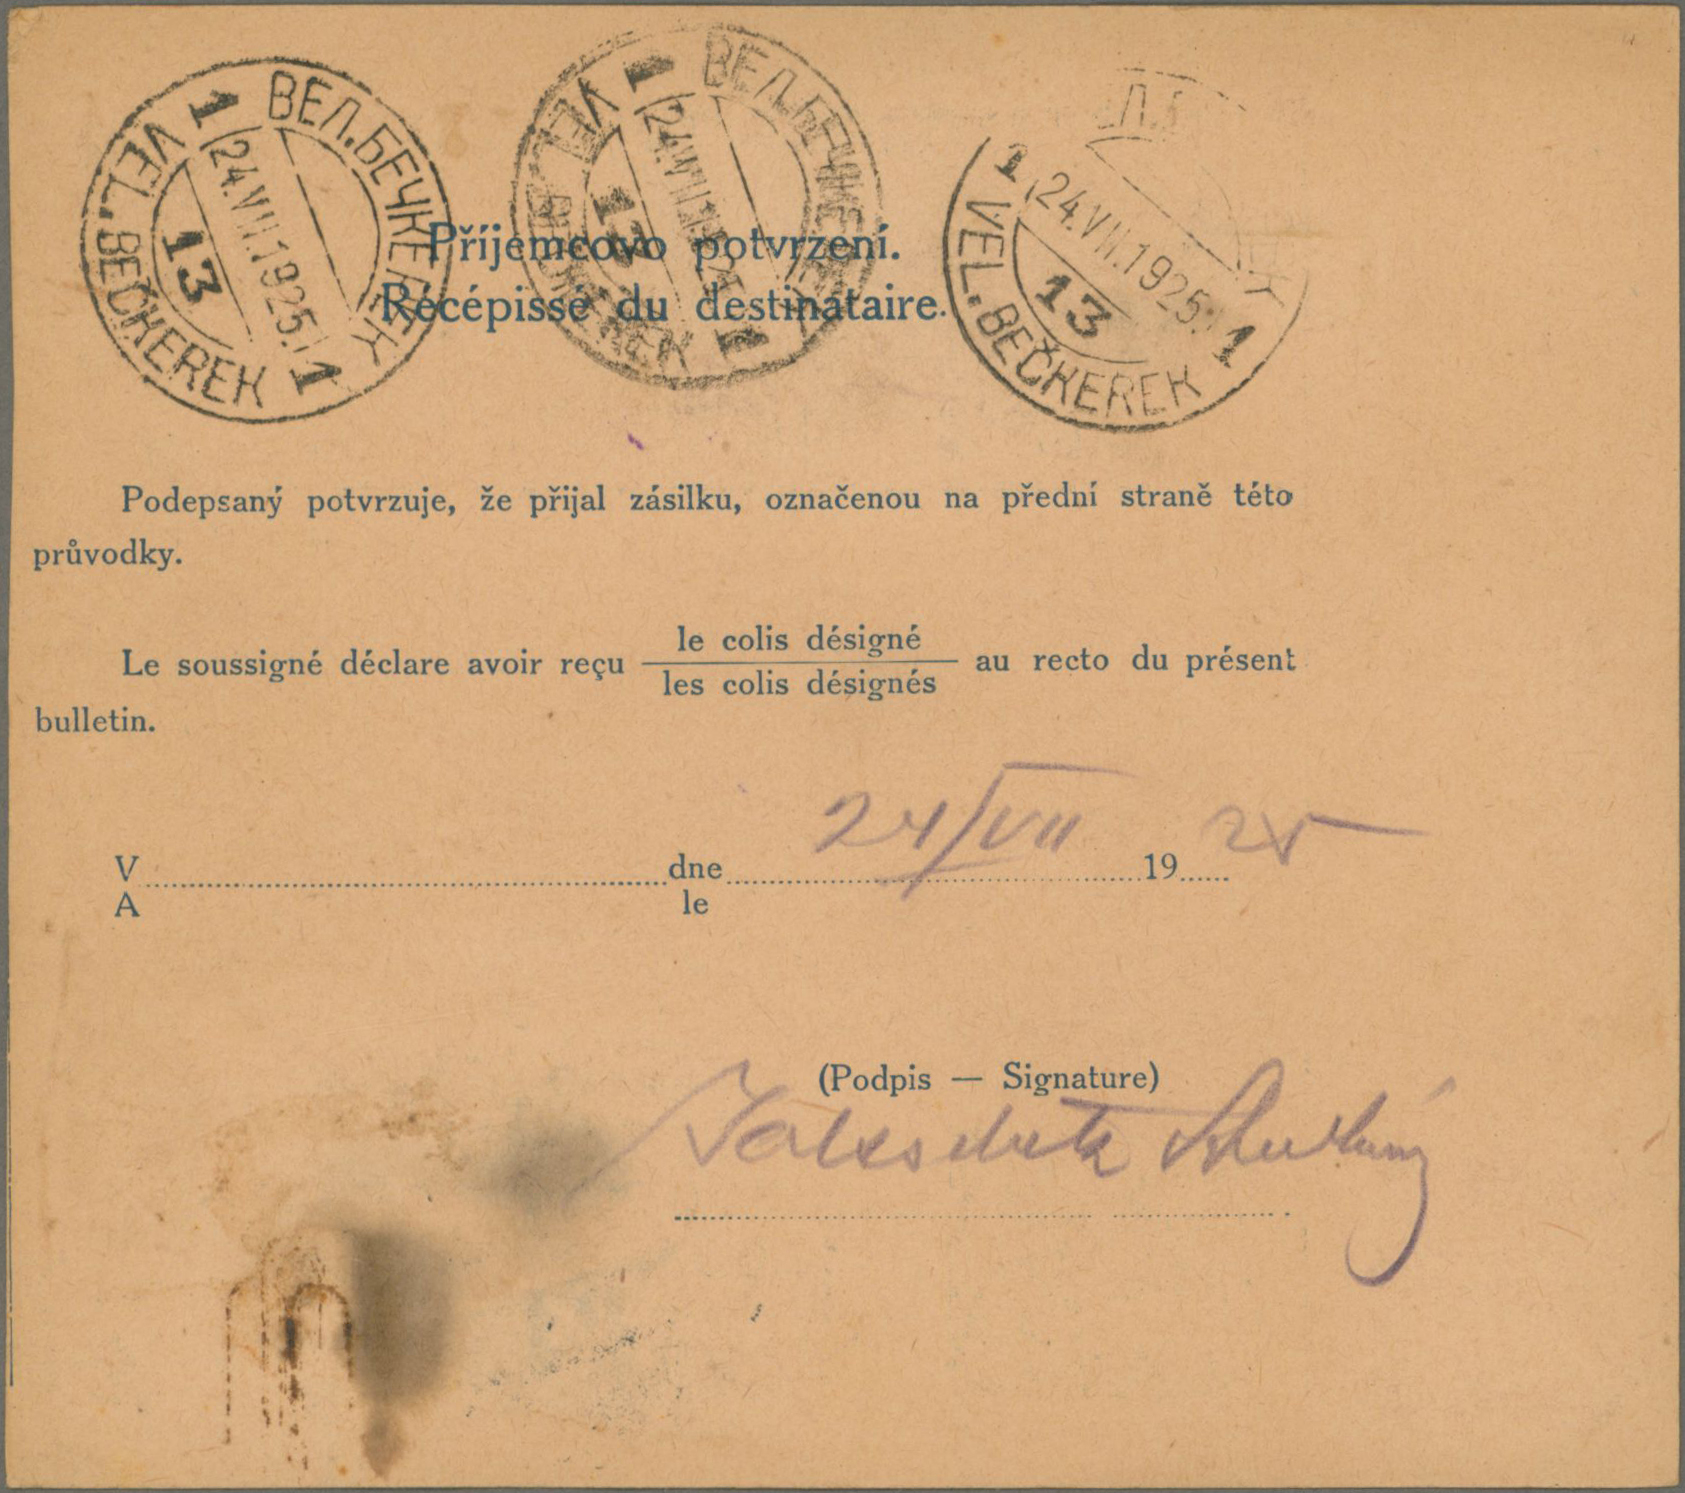 ВЕЛ.БЕЧКЕРЕК
1 24.VII.1925. 1
13
VEL.BEČKEREK
ВЕЛ.БЕЧКЕ
1 24.VII 1
13
VEL.
1 24.VII.1925. 1
13
VEL.BEČKEREK
Příjemcovo potvrzení.
Récépissé du destinataire.
Podepsaný potvrzuje, že přijal zásilku, označenou na přední straně této
průvodky.
le colis désigné
Le soussigné déclare avoir reçu au recto du présent
les colis désignés
bulletin.
V dne 24/VII 19 25
A le
(Podpis — Signature)